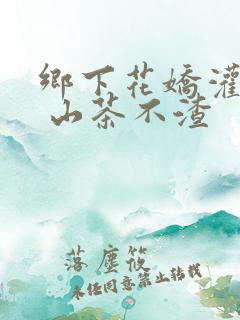 鄉下花嬌灌
山茶不渣
落塵筱
未经同意禁止转载